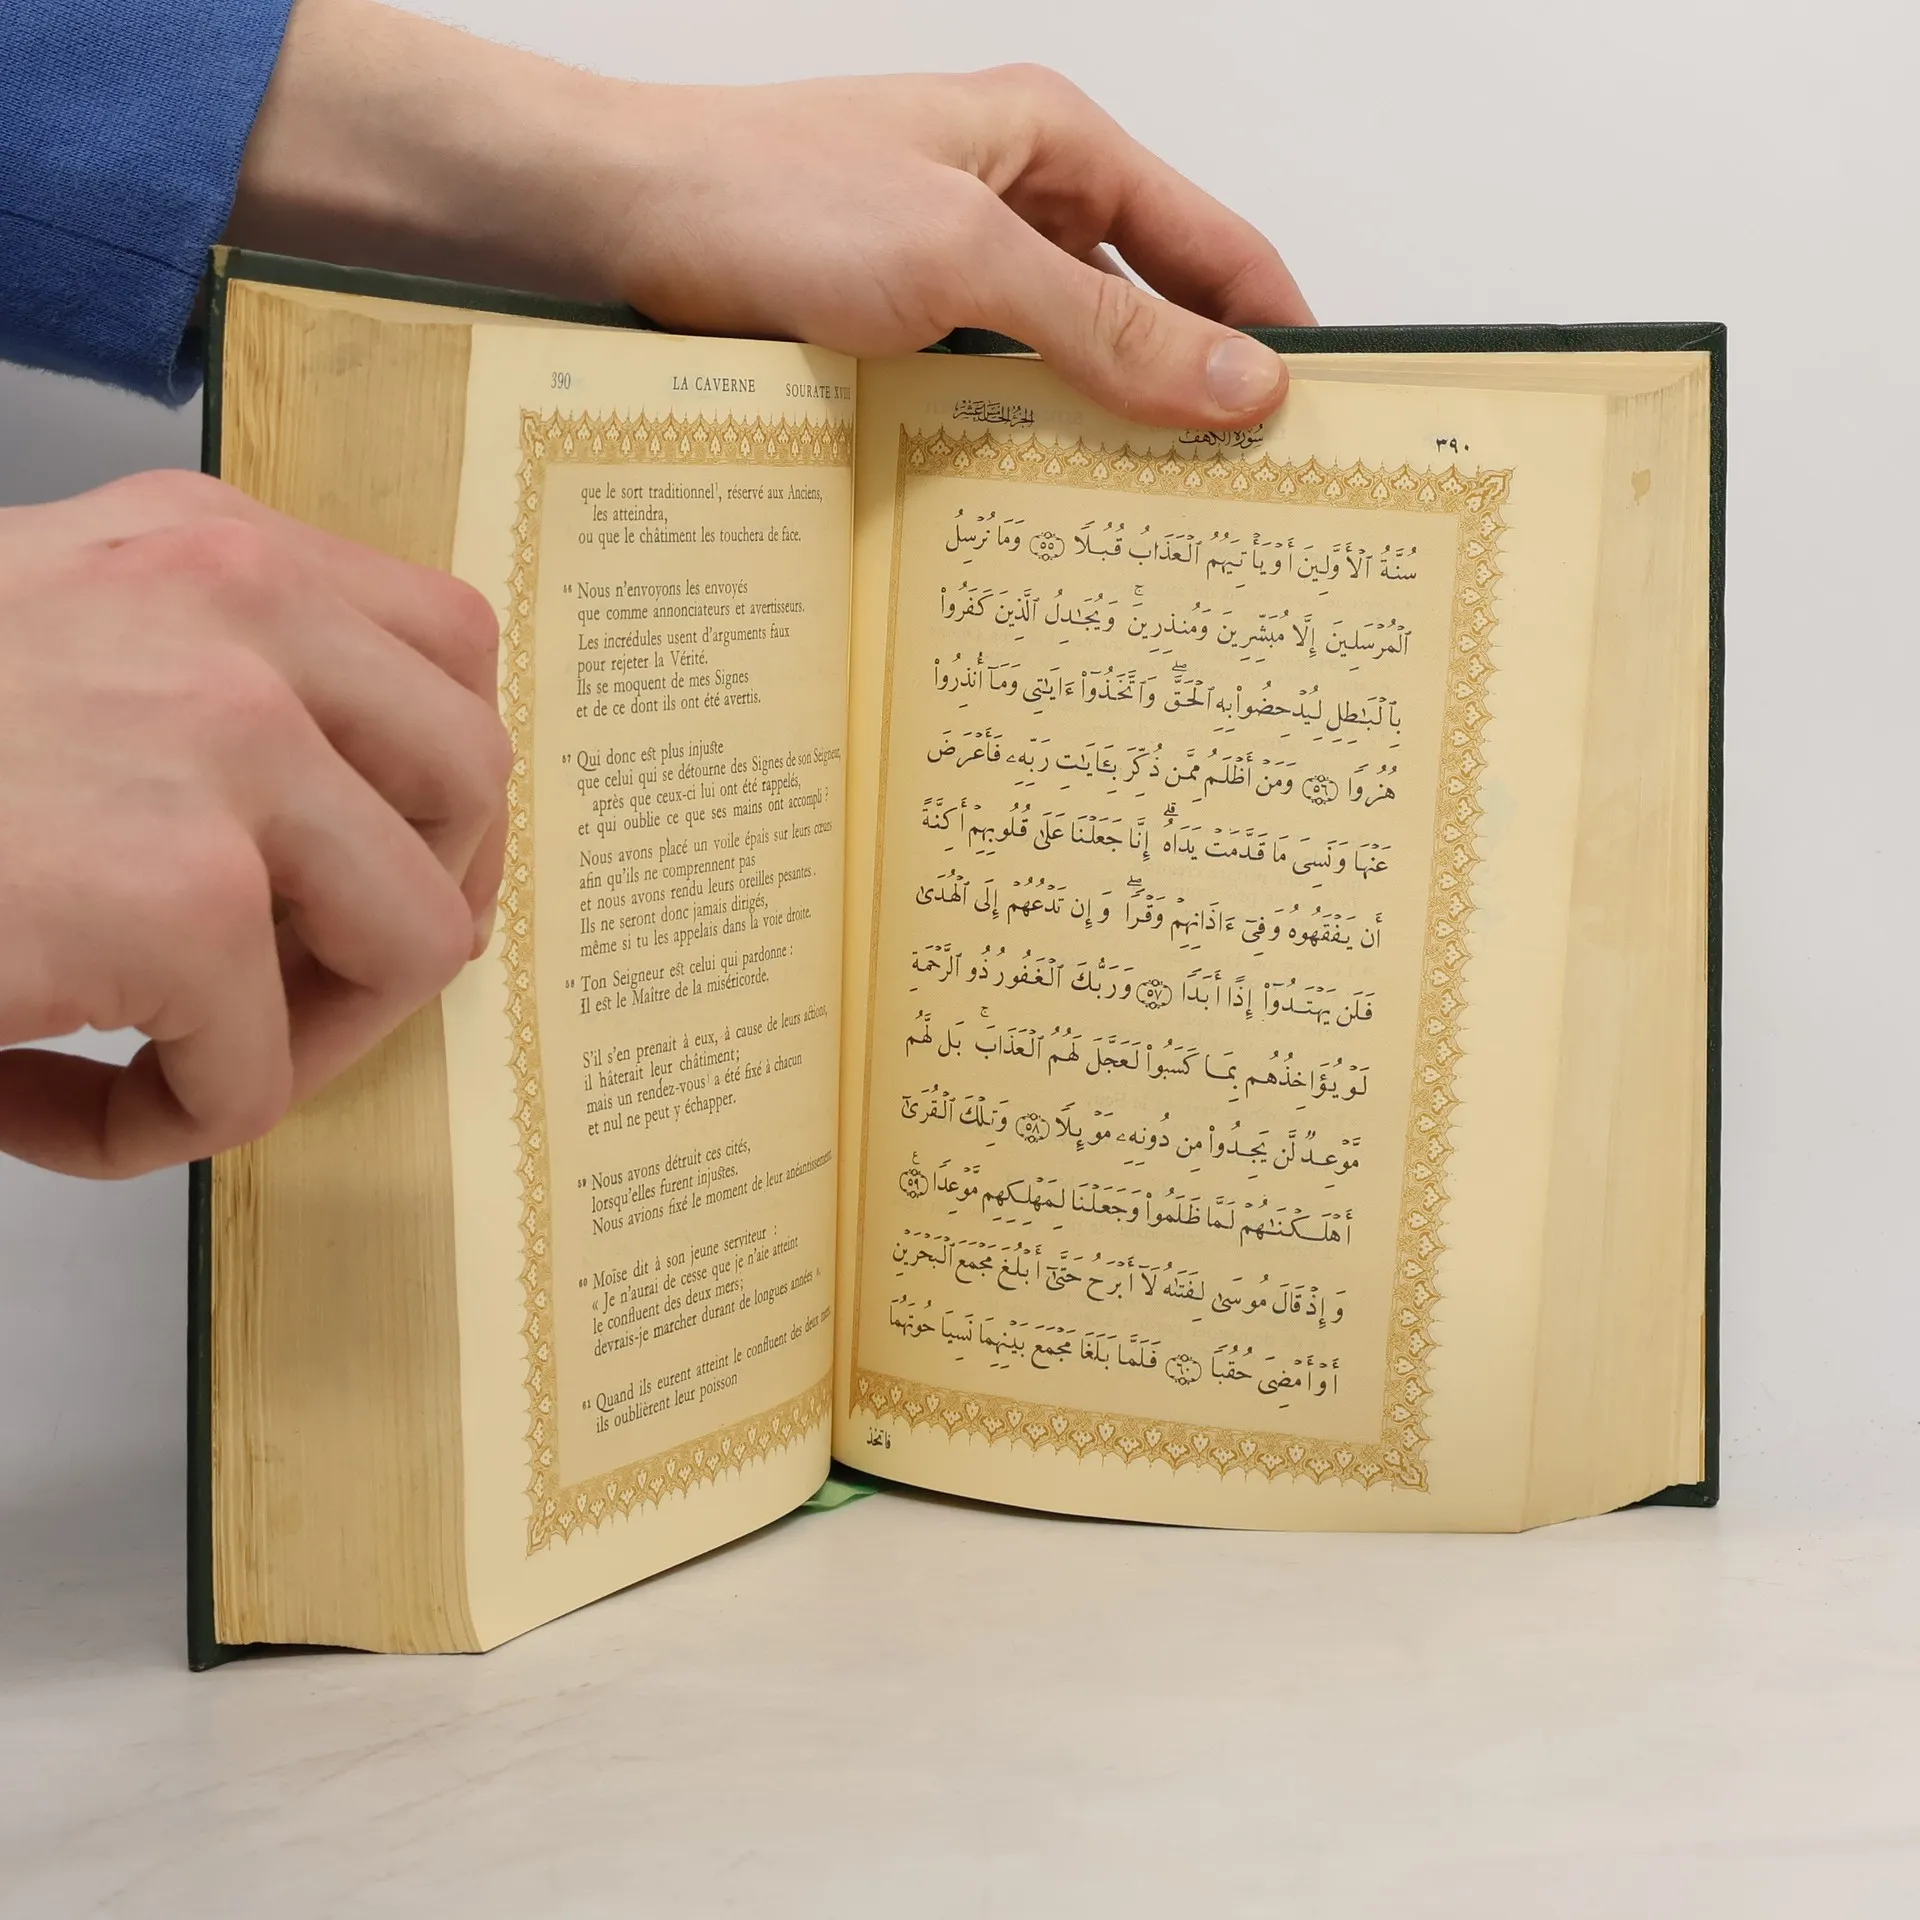 390 LA CAVERNE SOURATE XVIII
que le sort traditionnel¹, réservé aux Anciens,
les atteindra,
ou que le châtiment les touchera de face.
56 Nous n'envoyons les envoyés
que comme annonciateurs et avertisseurs.
Les incrédules usent d'arguments faux
pour rejeter la Vérité.
Ils se moquent de mes Signes
et de ce dont ils ont été avertis.
57 Qui donc est plus injuste
que celui qui se détourne des Signes de son Seigneur,
après que ceux-ci lui ont été rappelés,
et qui oublie ce que ses mains ont accompli ?
Nous avons placé un voile épais sur leurs cœurs
afin qu'ils ne comprennent pas
et nous avons rendu leurs oreilles pesantes.
Ils ne seront donc jamais dirigés,
même si tu les appelais dans la voie droite.
58 Ton Seigneur est celui qui pardonne :
Il est le Maître de la miséricorde.
S'il s'en prenait à eux, à cause de leurs actions,
il hâterait leur châtiment;
mais un rendez-vous¹ a été fixé à chacun
et nul ne peut y échapper.
59 Nous avons détruit ces cités,
lorsqu'elles furent injustes.
Nous avions fixé le moment de leur anéantissement.
60 Moïse dit à son jeune serviteur :
« Je n'aurai de cesse que je n'aie atteint
le confluent des deux mers;
devrais-je marcher durant de longues années ».
61 Quand ils eurent atteint le confluent des deux mers,
ils oublièrent leur poisson
الجزء الخامس عشر سورة الكهف ٣٩٠
سُنَّةُ ٱلْأَوَّلِينَ أَوْ يَأْتِيَهُمُ ٱلْعَذَابُ قُبُلًا ﴿٥٥﴾ وَمَا نُرْسِلُ
ٱلْمُرْسَلِينَ إِلَّا مُبَشِّرِينَ وَمُنذِرِينَ ۚ وَيُجَٰدِلُ ٱلَّذِينَ كَفَرُوا۟
بِٱلْبَٰطِلِ لِيُدْحِضُوا۟ بِهِ ٱلْحَقَّ ۖ وَٱتَّخَذُوٓا۟ ءَايَٰتِى وَمَآ أُنذِرُوا۟
هُزُوًا ﴿٥٦﴾ وَمَنْ أَظْلَمُ مِمَّن ذُكِّرَ بِـَٔايَٰتِ رَبِّهِۦ فَأَعْرَضَ
عَنْهَا وَنَسِىَ مَا قَدَّمَتْ يَدَاهُ ۚ إِنَّا جَعَلْنَا عَلَىٰ قُلُوبِهِمْ أَكِنَّةً
أَن يَفْقَهُوهُ وَفِىٓ ءَاذَانِهِمْ وَقْرًا ۖ وَإِن تَدْعُهُمْ إِلَى ٱلْهُدَىٰ
فَلَن يَهْتَدُوٓا۟ إِذًا أَبَدًا ﴿٥٧﴾ وَرَبُّكَ ٱلْغَفُورُ ذُو ٱلرَّحْمَةِ
لَوْ يُؤَاخِذُهُم بِمَا كَسَبُوا۟ لَعَجَّلَ لَهُمُ ٱلْعَذَابَ ۚ بَل لَّهُم
مَّوْعِدٌ لَّن يَجِدُوا۟ مِن دُونِهِۦ مَوْئِلًا ﴿٥٨﴾ وَتِلْكَ ٱلْقُرَىٰٓ
أَهْلَكْنَٰهُمْ لَمَّا ظَلَمُوا۟ وَجَعَلْنَا لِمَهْلِكِهِم مَّوْعِدًا ﴿٥٩﴾
وَإِذْ قَالَ مُوسَىٰ لِفَتَىٰهُ لَآ أَبْرَحُ حَتَّىٰٓ أَبْلُغَ مَجْمَعَ ٱلْبَحْرَيْنِ
أَوْ أَمْضِىَ حُقُبًا ﴿٦٠﴾ فَلَمَّا بَلَغَا مَجْمَعَ بَيْنِهِمَا نَسِيَا حُوتَهُمَا
فاتخذ